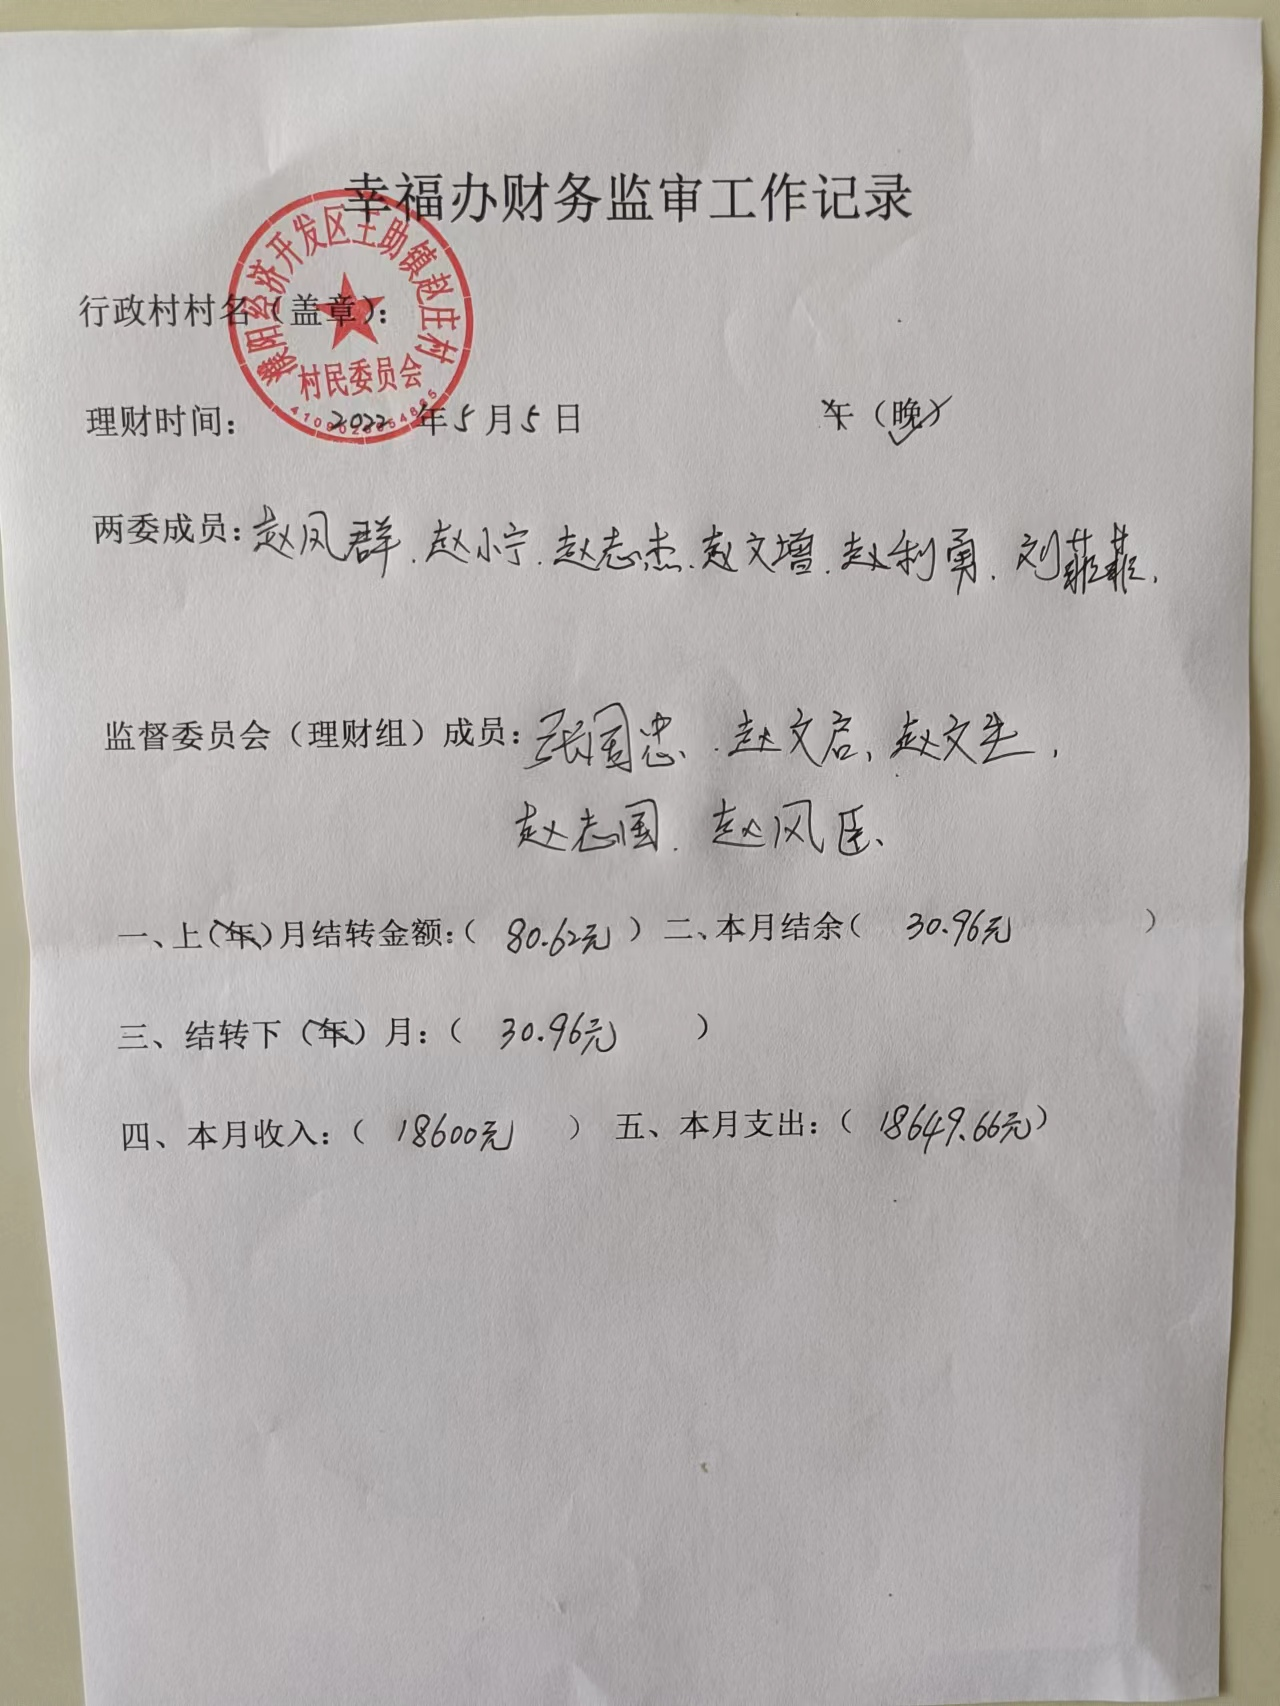 幸福办财务监审工作记录
行政村村名（盖章）：
濮阳经济开发区王助镇赵庄村
村民委员会
理财时间： 2022 年 5 月 5 日 午（晚）
两委成员：赵凤群、赵小宁、赵志杰、赵文增、赵利勇、刘菲菲、
监督委员会（理财组）成员：张国忠、赵文启、赵文生、
赵志国、赵风臣、
一、上（年）月结转金额：（ 80.62元 ） 二、本月结余（ 30.96元 ）
三、结转下（年）月：（ 30.96元 ）
四、本月收入：（ 18600元 ） 五、本月支出：（ 18649.66元）